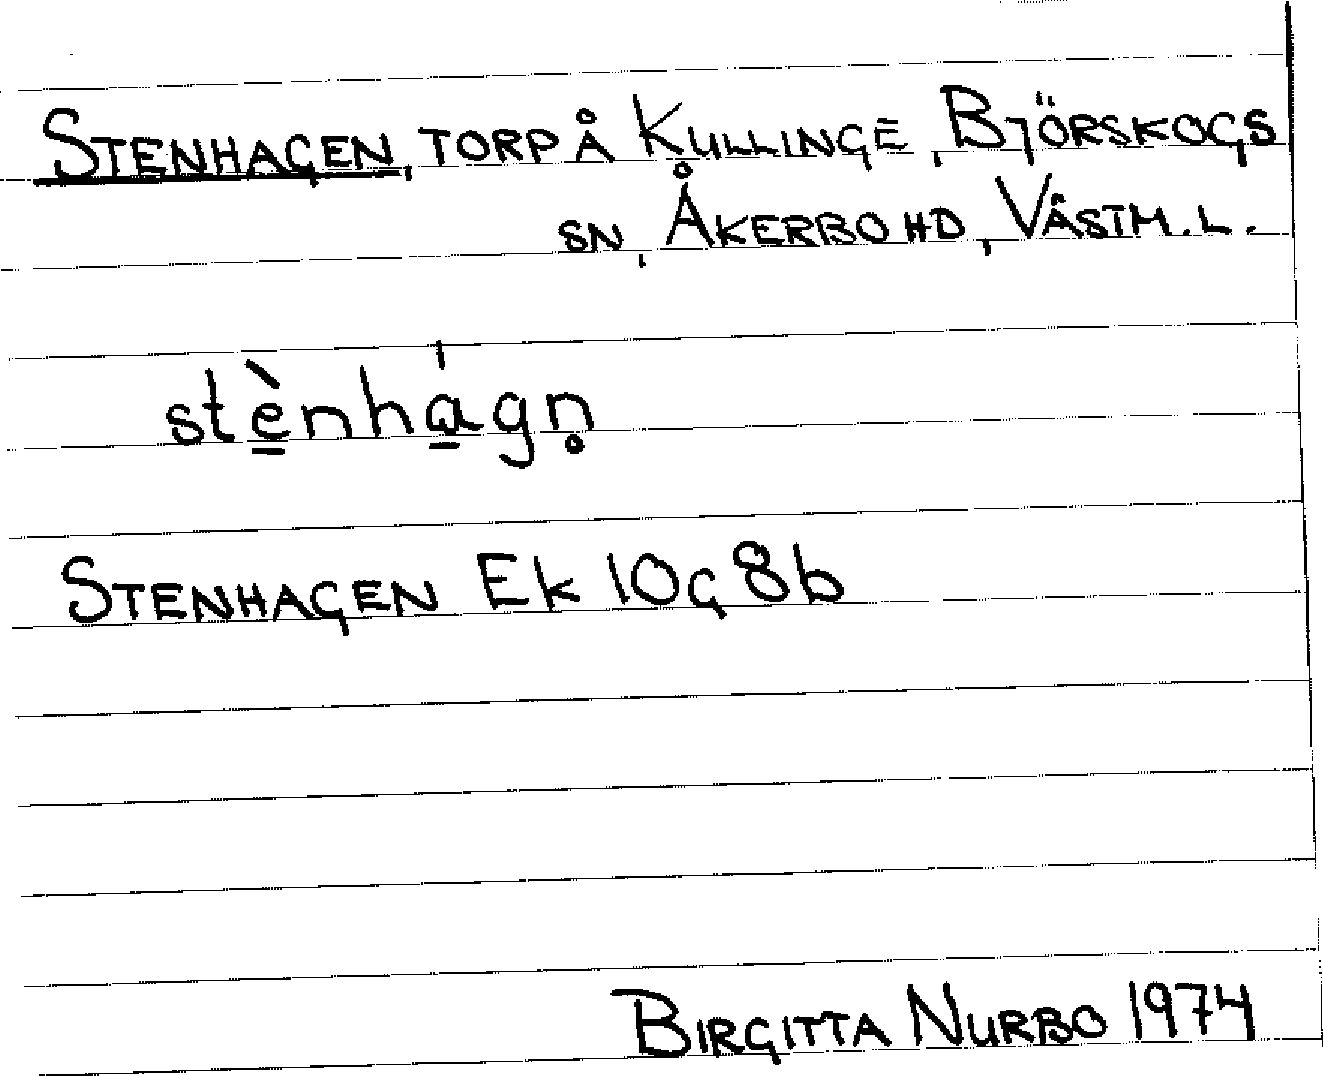 STENHAGEN, TORP Å KULLINGE, BJÖRSKOGS
SN, ÅKERBO HD, VÄSTM. L.
stè̱nhá̱gn̥
STENHAGEN Ek 10G 8b
BIRGITTA NURBO 1974